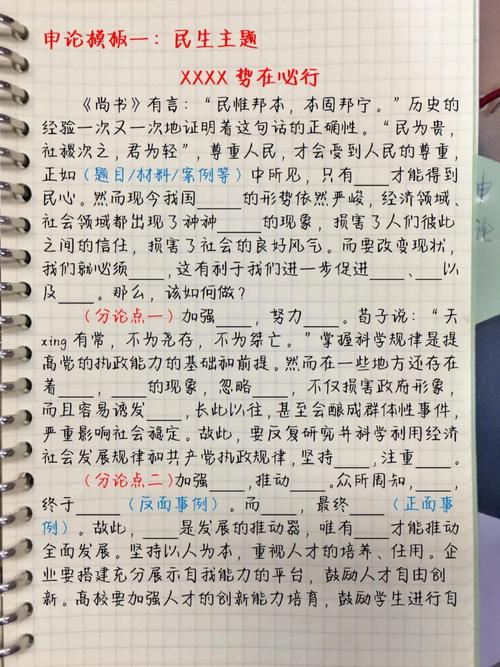 申论模板一：民生主题
XXXX 势在必行
《尚书》有言：“民惟邦本，本固邦宁。”历史的
经验一次又一次地证明着这句话的正确性。“民为贵，
社稷次之，君为轻”，尊重人民，才会受到人民的尊重，
正如（题目/材料/案例等）中所见，只有____才能得到
民心。然而现今我国____的形势依然严峻，经济领域、
社会领域都出现了种种____的现象，损害了人们彼此
之间的信任，损害了社会的良好风气。而要改变现状，
我们就必须____，这有利于我们进一步促进____、____以
及____。那么，该如何做？
（分论点一）加强____，努力____。荀子说：“天
xing有常，不为尧存，不为桀亡。”掌握科学规律是提
高党的执政能力的基础和前提。然而在一些地方还存在
着____，____的现象，忽略____，不仅损害政府形象，
而且容易诱发____，长此以往，甚至会酿成群体性事件，
严重影响社会稳定。故此，要反复研究并科学利用经济
社会发展规律和共产党执政规律，坚持____，注重____。
（分论点二）加强____，推动____。众所周知，____，
终于____（反面事例）。而____，最终____（正面事
例）。故此，____是发展的推动器，唯有____才能推动
全面发展。坚持以人为本，重视人才的培养、任用。企
业要搭建充分展示自我能力的平台，鼓励人才自由创
新。高校要加强人才的创新能力培育，鼓励学生进行自
申论